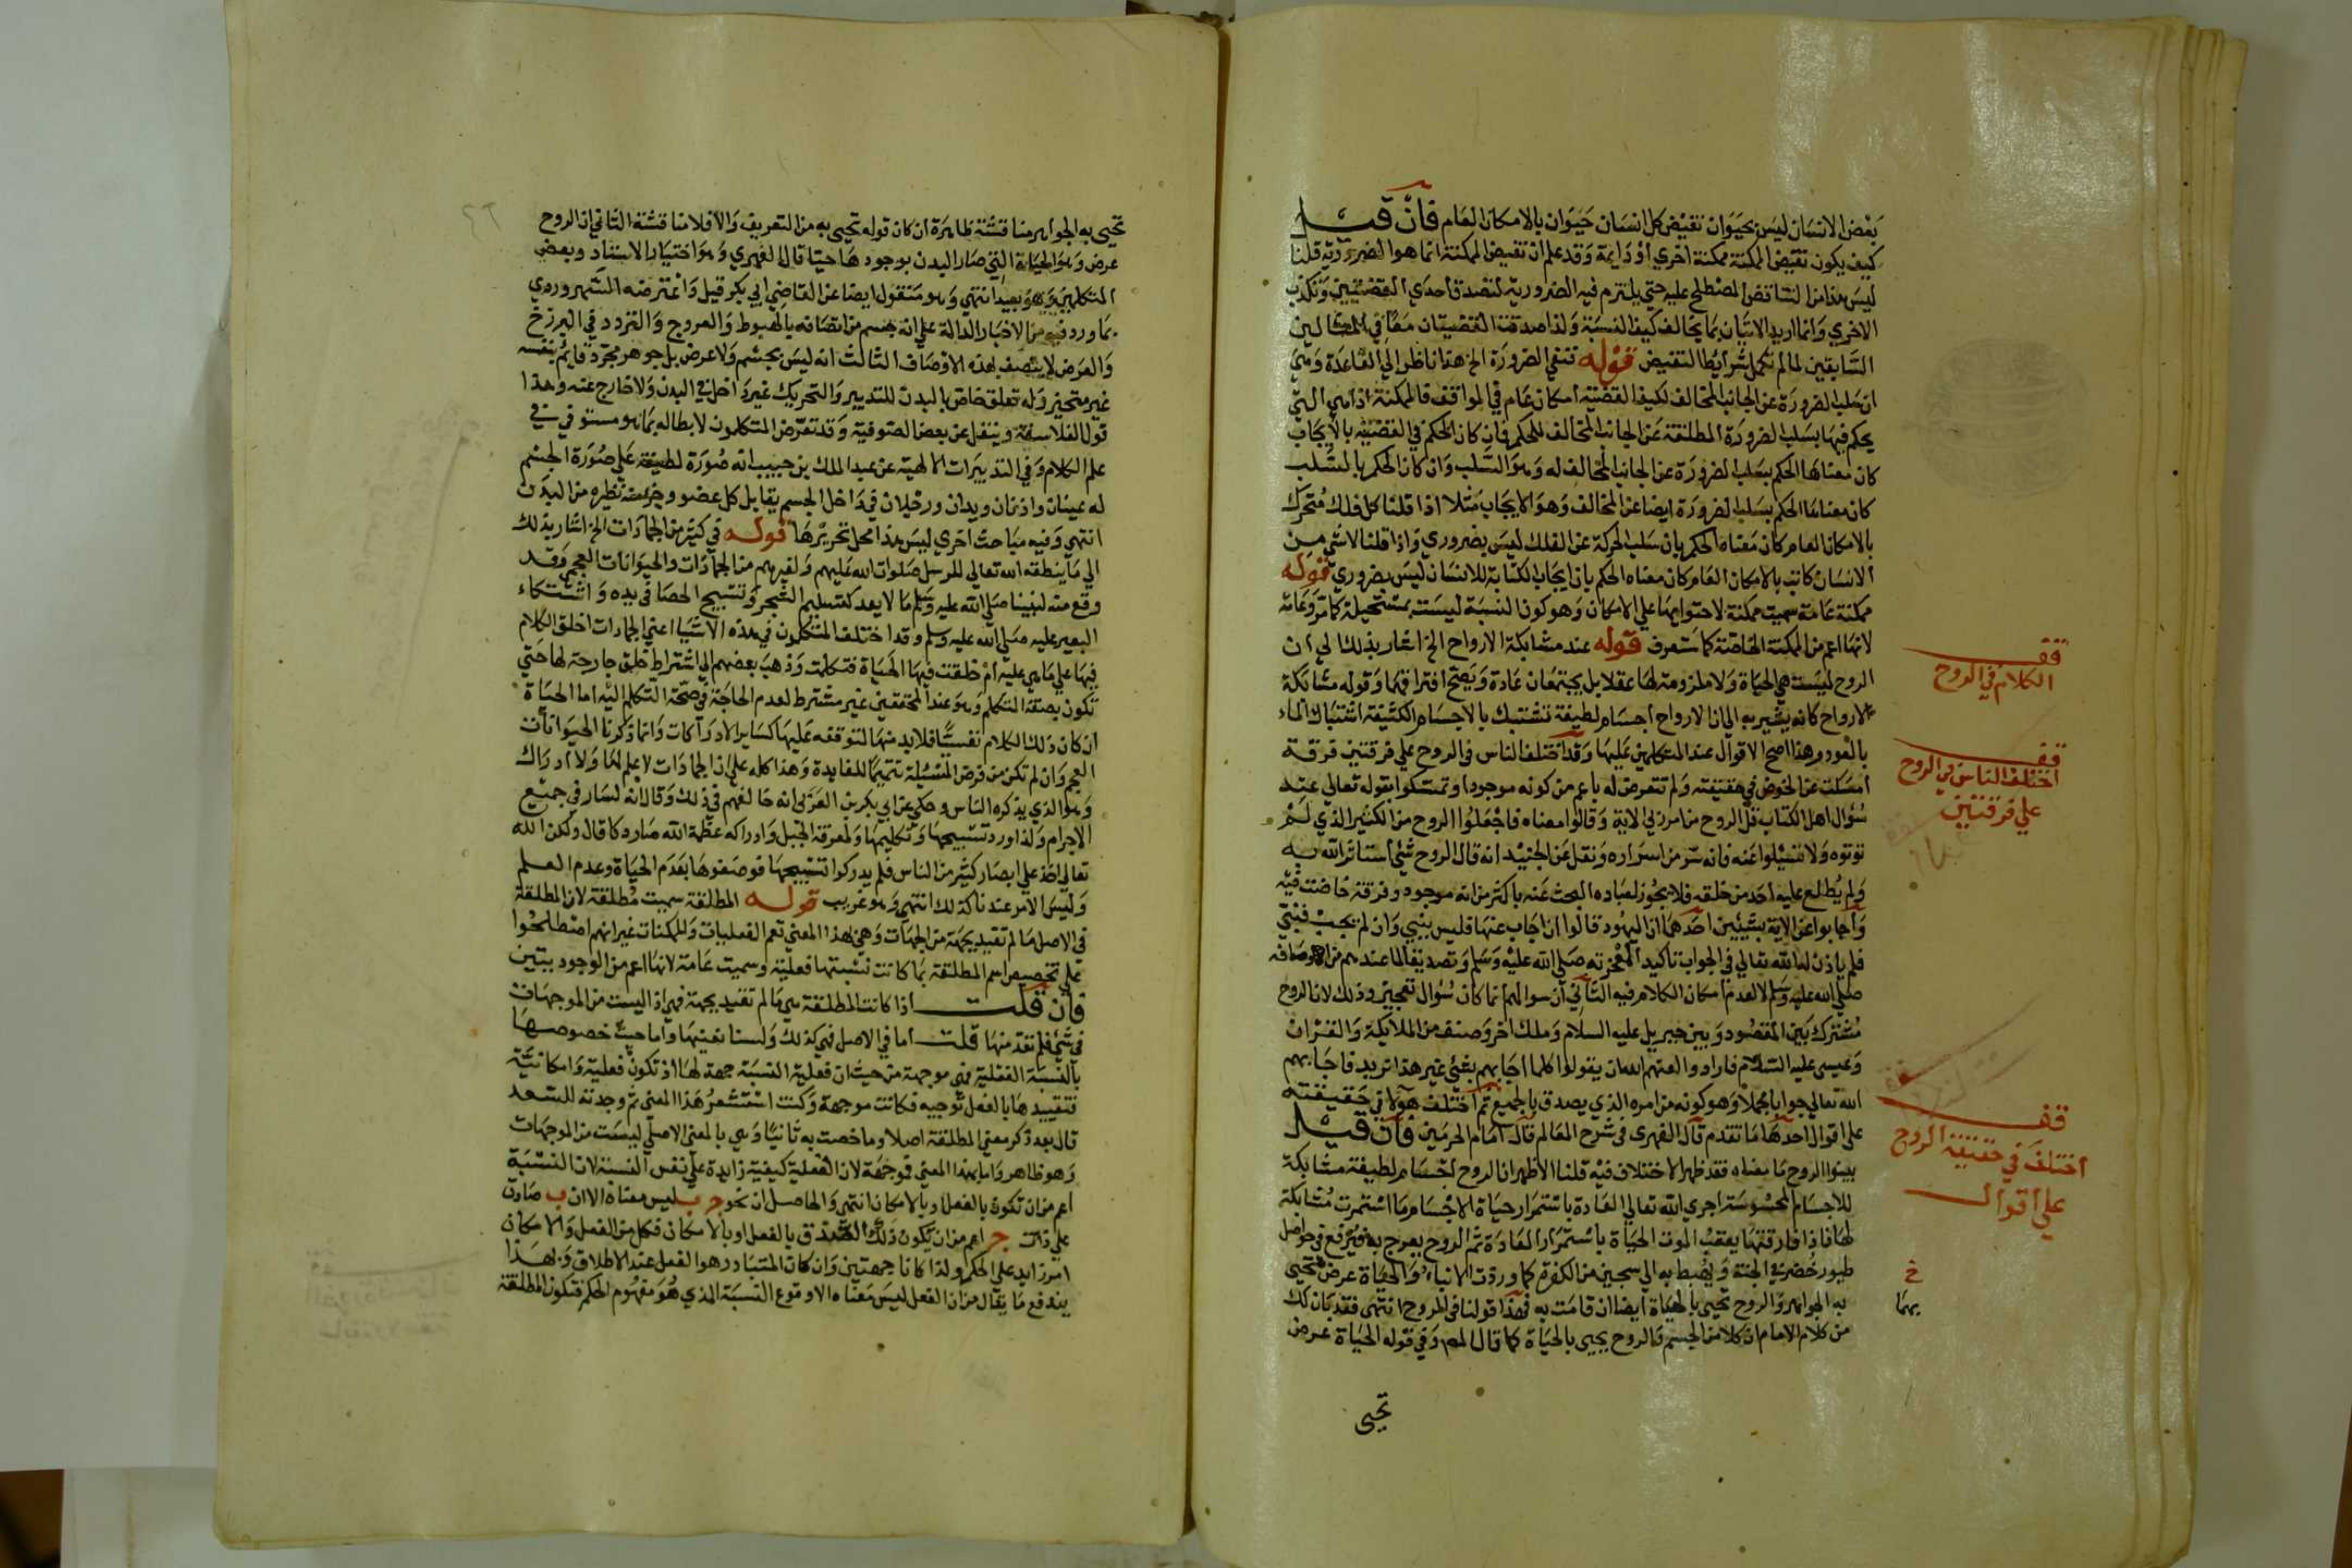 بعض الانسان ليس بحيوان نقيض كل انسان حيوان بالامكان العام فان قيل
كيف يكون نقيض الممكنة ممكنة اخري او دايمة وقد علم ان نقيض الممكنة انما هو الضرورية قلنا
ليس هذا من التناقض المصطلح عليه حتي يلتزم فيه الضرورية لتصدق احدي القضيتين وتكذب
الاخري وانما اريد الاتيان بما يخالف كيف النسبة ولذا صدقت القضيتان معا في المثالين
السابقين لما لم تكمل شرايط التقيض قوله تنفي الضرورة الخ هذا ناظر الي القاعدة وهي
ان سلب الضرورة عن الجانب المخالف لكيف القضية امكان عام في المواقف فالممكنة اذا هي التي
يحكم فيها بسلب الضرورة المطلقة عن الجانب المخالف للحكم فان كان الحكم في القضية بالايجاب
كان معناها الحكم بسلب الضرورة عن الجانب المخالف له وهو السلب وان كان الحكم بالسلب
كان معناها الحكم بسلب الضرورة ايضا عن المخالف وهو الايجاب مثلا اذا قلنا كل فلك متحرك
بالامكان العام كان معناه الحكم بان سلب الحركة عن الفلك ليس بضروري واذا قلنا لا شي من
الانسان كاتب بالامكان العام كان معناه الحكم بان ايجاب الكتابة للانسان ليس بضروري قوله
ممكنة عامة سميت ممكنة لاحتوايها علي الامكان وهو كون النسبة ليست بمستحيلة كما مر وعامة
لانها اعم من الممكنة الخاصة كما ستعرف قوله عند مشابكة الارواح الخ اشار بذلك الي ان
الروح ليست هي الحياة ولا ملزومة لها عقلا بل يجتمعان عادة ويصح افتراقهما وقوله مشابكة
الارواح كانه يشير به الي ان الارواح اجسام لطيفة تشتبك بالاجسام الكثيفة اشتباك الماء
بالعود وهذا اصح الاقوال عند المتكلمين عليها وقد اختلف الناس في الروح علي فرقتين فرقة
امسكت عن الخوض في حقيقته ولم تتعرض له باعم من كونه موجودا وتمسكوا بقوله تعالي عند
سؤال اهل الكتاب قل الروح من امر ربي الاية وقالوا معناه فاجعلوا الروح من الكثير الذي لم
توتوه ولا تسيلوا عنه فانه سر من اسراره ونقل عن الجنيد انه قال الروح شي استاثر الله به
ولم يطلع عليه احد من خلقه فلا يجوز لعباده البحث عنه باكثر من انه موجود وفرقة خاضت فيه
واجابوا عن الاية بشيئين احدهما ان اليهود قالوا ان اجاب عنها فليس بنبي وان لم يجب فنبي
فلم ياذن له الله تعالي في الجواب تاكيد المعجزته صلي الله عليه وسلم وتصديقا لما عندهم من اوصافه
صلي الله عليه وسلم لا لعدم امكان الكلام فيه الثاني ان سوالهم انما كان سؤال تعجيز وذلك لان الروح
مشترك بين المقصود وبين جبريل عليه السلام وملك اخر وصنف من الملايكة والقران
وعيسي عليه السلام فارادوا لعنهم الله ان يقولوا كلما اجابهم بشي غير هذا تريد فاجابهم
الله تعالي جوابا مجملا وهو كونه من امره الذي يصدق بالجميع ثم اختلف هؤلا في حقيقته
علي اقوال احدها ما تقدم قال الفهري في شرح المعالم قال امام الحرمين فان قيل
بينوا الروح ما معناه فقد ظهر الاختلاف فيه قلنا الاظهر ان الروح اجسام لطيفة مشابكة
للاجسام المحسوسة اجري الله تعالي العادة باستمرار حياة الاجسام ما استمرت مشابكة
لها فاذا فارقتها يعقب الموت الحياة باستمرار العادة ثم الروح يعرج به ويرفع في حواصل
طيور خضر في الجنة ويهبط به الي سجين من الكفرة كما وردت الانباء والحياة عرض تحيي
به الجواهر والروح تحيي بالحياة ايضا ان قامت به فهذا قولنا في الروح انتهي فقد بان لك
من كلام الامام ان كلا من الجسم والروح يحيي بالحياة كما قال المص وفي قوله الحياة عرض
تحيي
قف
الكلام في الروح
قف
اختلف الناس في الروح
علي فرقتين
قف
اختلف في حقيقة الروح
علي اقوال
خ
بهما
تحيي به الجواهر مناقشة ظاهرة ان كان قوله تحيي به من التعريف والا فلا مناقشة الثاني ان الروح
عرض وهو الحياة التي صار البدن بوجودها حيا قال الفهري وهو اختيار الاستاد وبعض
المتكلمين وهو بعيد انتهي وهو منقول ايضا عن القاضي ابي بكر قيل واعترضه السهروردي
بما ورد فيه من الاخبار الدالة علي انه جسم من اتصافه بالهبوط والعروج والتردد في البرزخ
والعرض لا يتصف بهذه الاوصاف الثالث انه ليس بجسم ولا عرض بل جوهر مجرد قايم بنفسه
غير متحيز وله تعلق خاص بالبدن للتدبير والتحريك غير داخل في البدن ولا خارج عنه وهذا
قول الفلاسفة وينقل عن بعض الصوفية وقد تعرض المتكلمون لابطاله بما هو مستوفي في
علم الكلام وفي التدبيرات الالهية عن عبد الملك بن حبيب انه صورة لطيفة علي صورة الجسم
له عينان واذنان ويدان ورجلان في داخل الجسم يقابل كل عضو وجزء منه نظيره من البدن
انتهي وفيه مباحث اخري ليس هذا محل تحريرها قوله في كثير من الجمادات الخ اشار بذلك
الي ما ينطقه الله تعالي للرسل صلوات الله عليهم ولغيرهم من الجمادات والحيوانات العجم وقد
وقع منه لنبينا صلي الله عليه وسلم ما لا يعد كتسليم الشجر وتسبيح الحصا في يده واشتكاء
البعير عليه صلي الله عليه وسلم وقد اختلف المتكلمون في هذه الاشيا اعني الجمادات اخلق الكلام
فيها علي ما هي عليه ام خلقت فيها الحياة فتكلمت وذهب بعضهم الي اشتراط خلق جارحة لها حتي
تكون بصفة التكلم وهو عند المحققين غير مشترط لعدم الحاجة في صحة التكلم اليه اما الحياة
ان كان ذلك الكلام نفسيا فلا بد منها لتوقفه عليها كساير الادراكات وانما ذكرنا الحيوانات
العجم وان لم تكن من فرض المسئلة تتميما للفايدة وهذا كله علي ان الجمادات لا علم لها ولا ادراك
وهو الذي يذكره الناس وحكي عن ابي بكر بن العربي انه خالفهم في ذلك وقال انه لسار في جميع
الاجرام ولذا ورد تسبيحها وتكليمها ومعرفة الجبل وادراكه عظمة الله صار دكا قال ولكن الله
تعالي اخذ علي ابصار كثير من الناس فلم يدركوا تسبيحها فوصفوها بعدم الحياة وعدم العلم
وليس الامر عندنا كذلك انتهي وهو غريب قوله المطلقة سميت مطلقة لان المطلقة
في الاصل ما لم تقيد بجهة من الجهات وهي بهذا المعني تعم الفعليات والممكنات غير انهم اصطلحوا
علي تخصيص اسم المطلقة بما كانت نسبتها فعلية وسميت عامة لانها اعم من الوجوديتين
فان قلت اذا كانت المطلقة هي ما لم تقيد بجهة فهي اذا ليست من الموجهات
في شي فلم تعد منها قلت اما في الاصل فهي كذلك ولسنا نعنيها واما حيث خصوصها
بالنسبة الفعلية فهي موجهة من حيث ان فعلية النسبة جهة لها اذ تكون فعلية وامكانية
فتقييدها بالفعل توجيه فكانت موجهة وكنت استشعر هذا المعني ثم وجدته للسعد
قال بعد ذكر معني المطلقة اصلا وما خصت به ثانيا وهي بالمعني الاصلي ليست من الموجهات
وهو ظاهر واما بهذا المعني فموجهة لان الفعلية كيفية زايدة علي نفس النسبة لان النسبة
اعم من ان تكون بالفعل او بالامكان انتهي والحاصل ان نحو ج ب ليس معناه الا ان ب صادق
علي ذات ج اعم من ان يكون ذلك الصدق بالفعل او بالامكان فكل من الفعل والامكان
امر زايد علي الحكم ولذا كانا جهتين وان كان المتبادر هو الفعل عند الاطلاق وبهذا
يندفع ما يقال من ان الفعل ليس معناه الا وقوع النسبة الذي هو مفهوم الحكم فتكون المطلقة